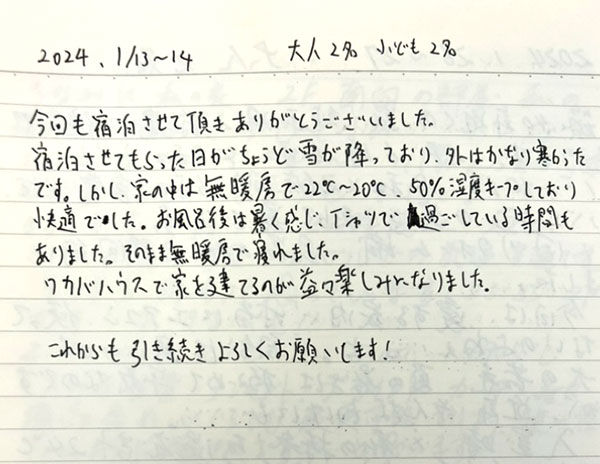 2024、1/13～14　大人2名 小ども2名
今回も宿泊させて頂きありがとうございました。
宿泊させてもらった日がちょうど雪が降っており、外はかなり寒かった
です。しかし、家の中は無暖房で22℃～20℃、50%湿度キープしており
快適でした。お風呂後は暑く感じ、Tシャツで過ごしている時間も
ありました。そのまま無暖房で寝れました。
ワカバハウスで家を建てるのが益々楽しみになりました。
これからも引き続きよろしくお願いします!